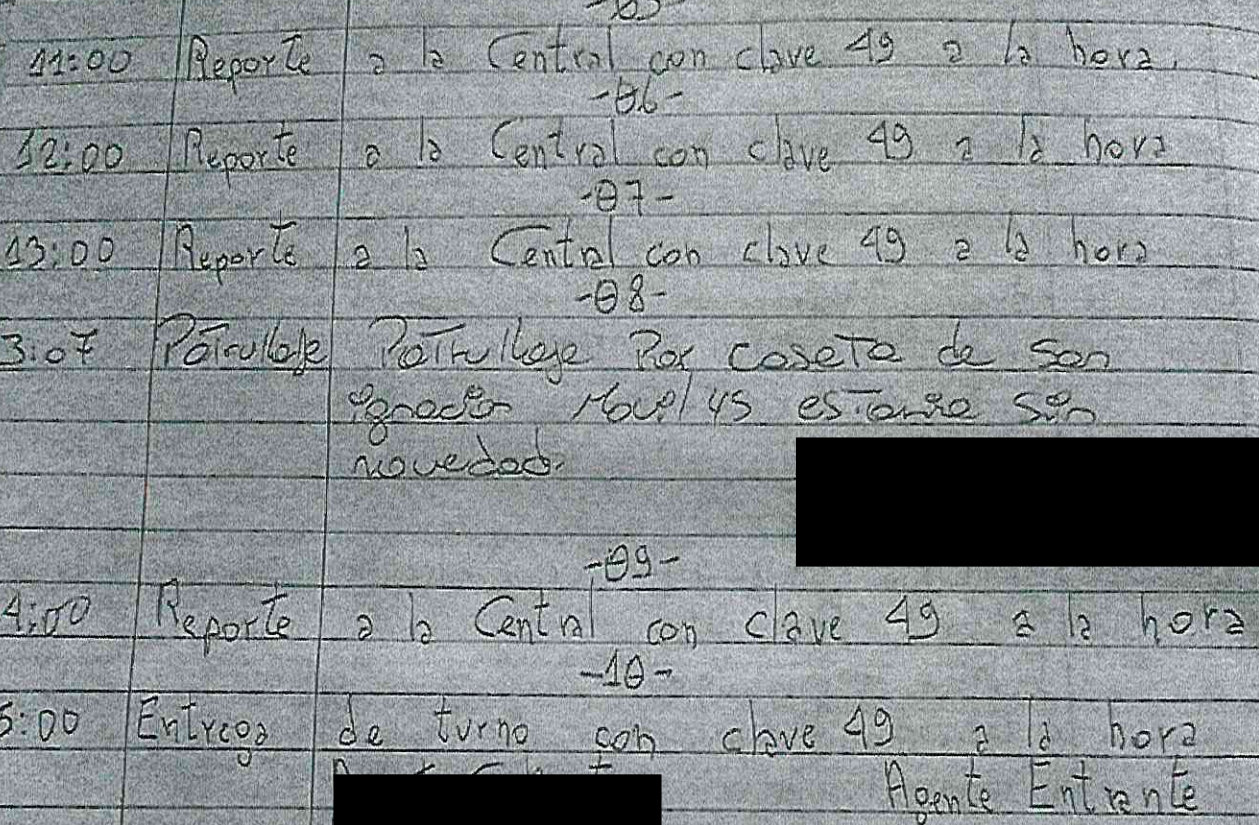 11:00 Reporte a la Central con clave 49 a la hora.
-06-
12:00 Reporte a la Central con clave 49 a la hora
-07-
13:00 Reporte a la Central con clave 49 a la hora
-08-
3:07 Patrullaje Patrullaje Por caseta de San
ignacio Movel 45 estania sin
novedad.
-09-
4:00 Reporte a la Central con clave 49 a la hora
-10-
5:00 Entrega de turno con clave 49 a la hora
Agente Entrante